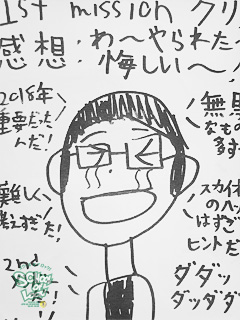 1st mission クリ
感想:わ〜やられた
悔しい〜
2018年
重要だった
んだ!
無
なもの
多す
難しく
考えすぎた!
スカイ
のヘッ
はすご
ヒントだ
2nd
ダダッ
ダッダダ